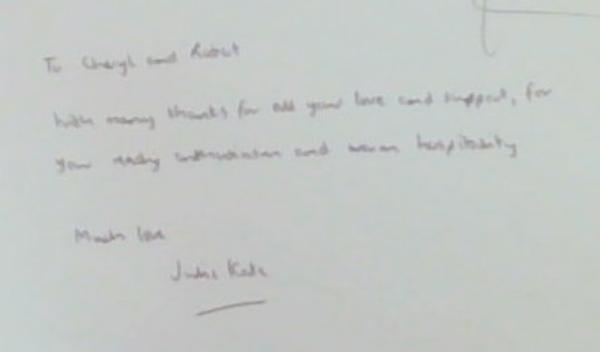 To Cheryl and Robert
With many thanks for all your love and support, for
your and warm hospitality
Much love
Kate